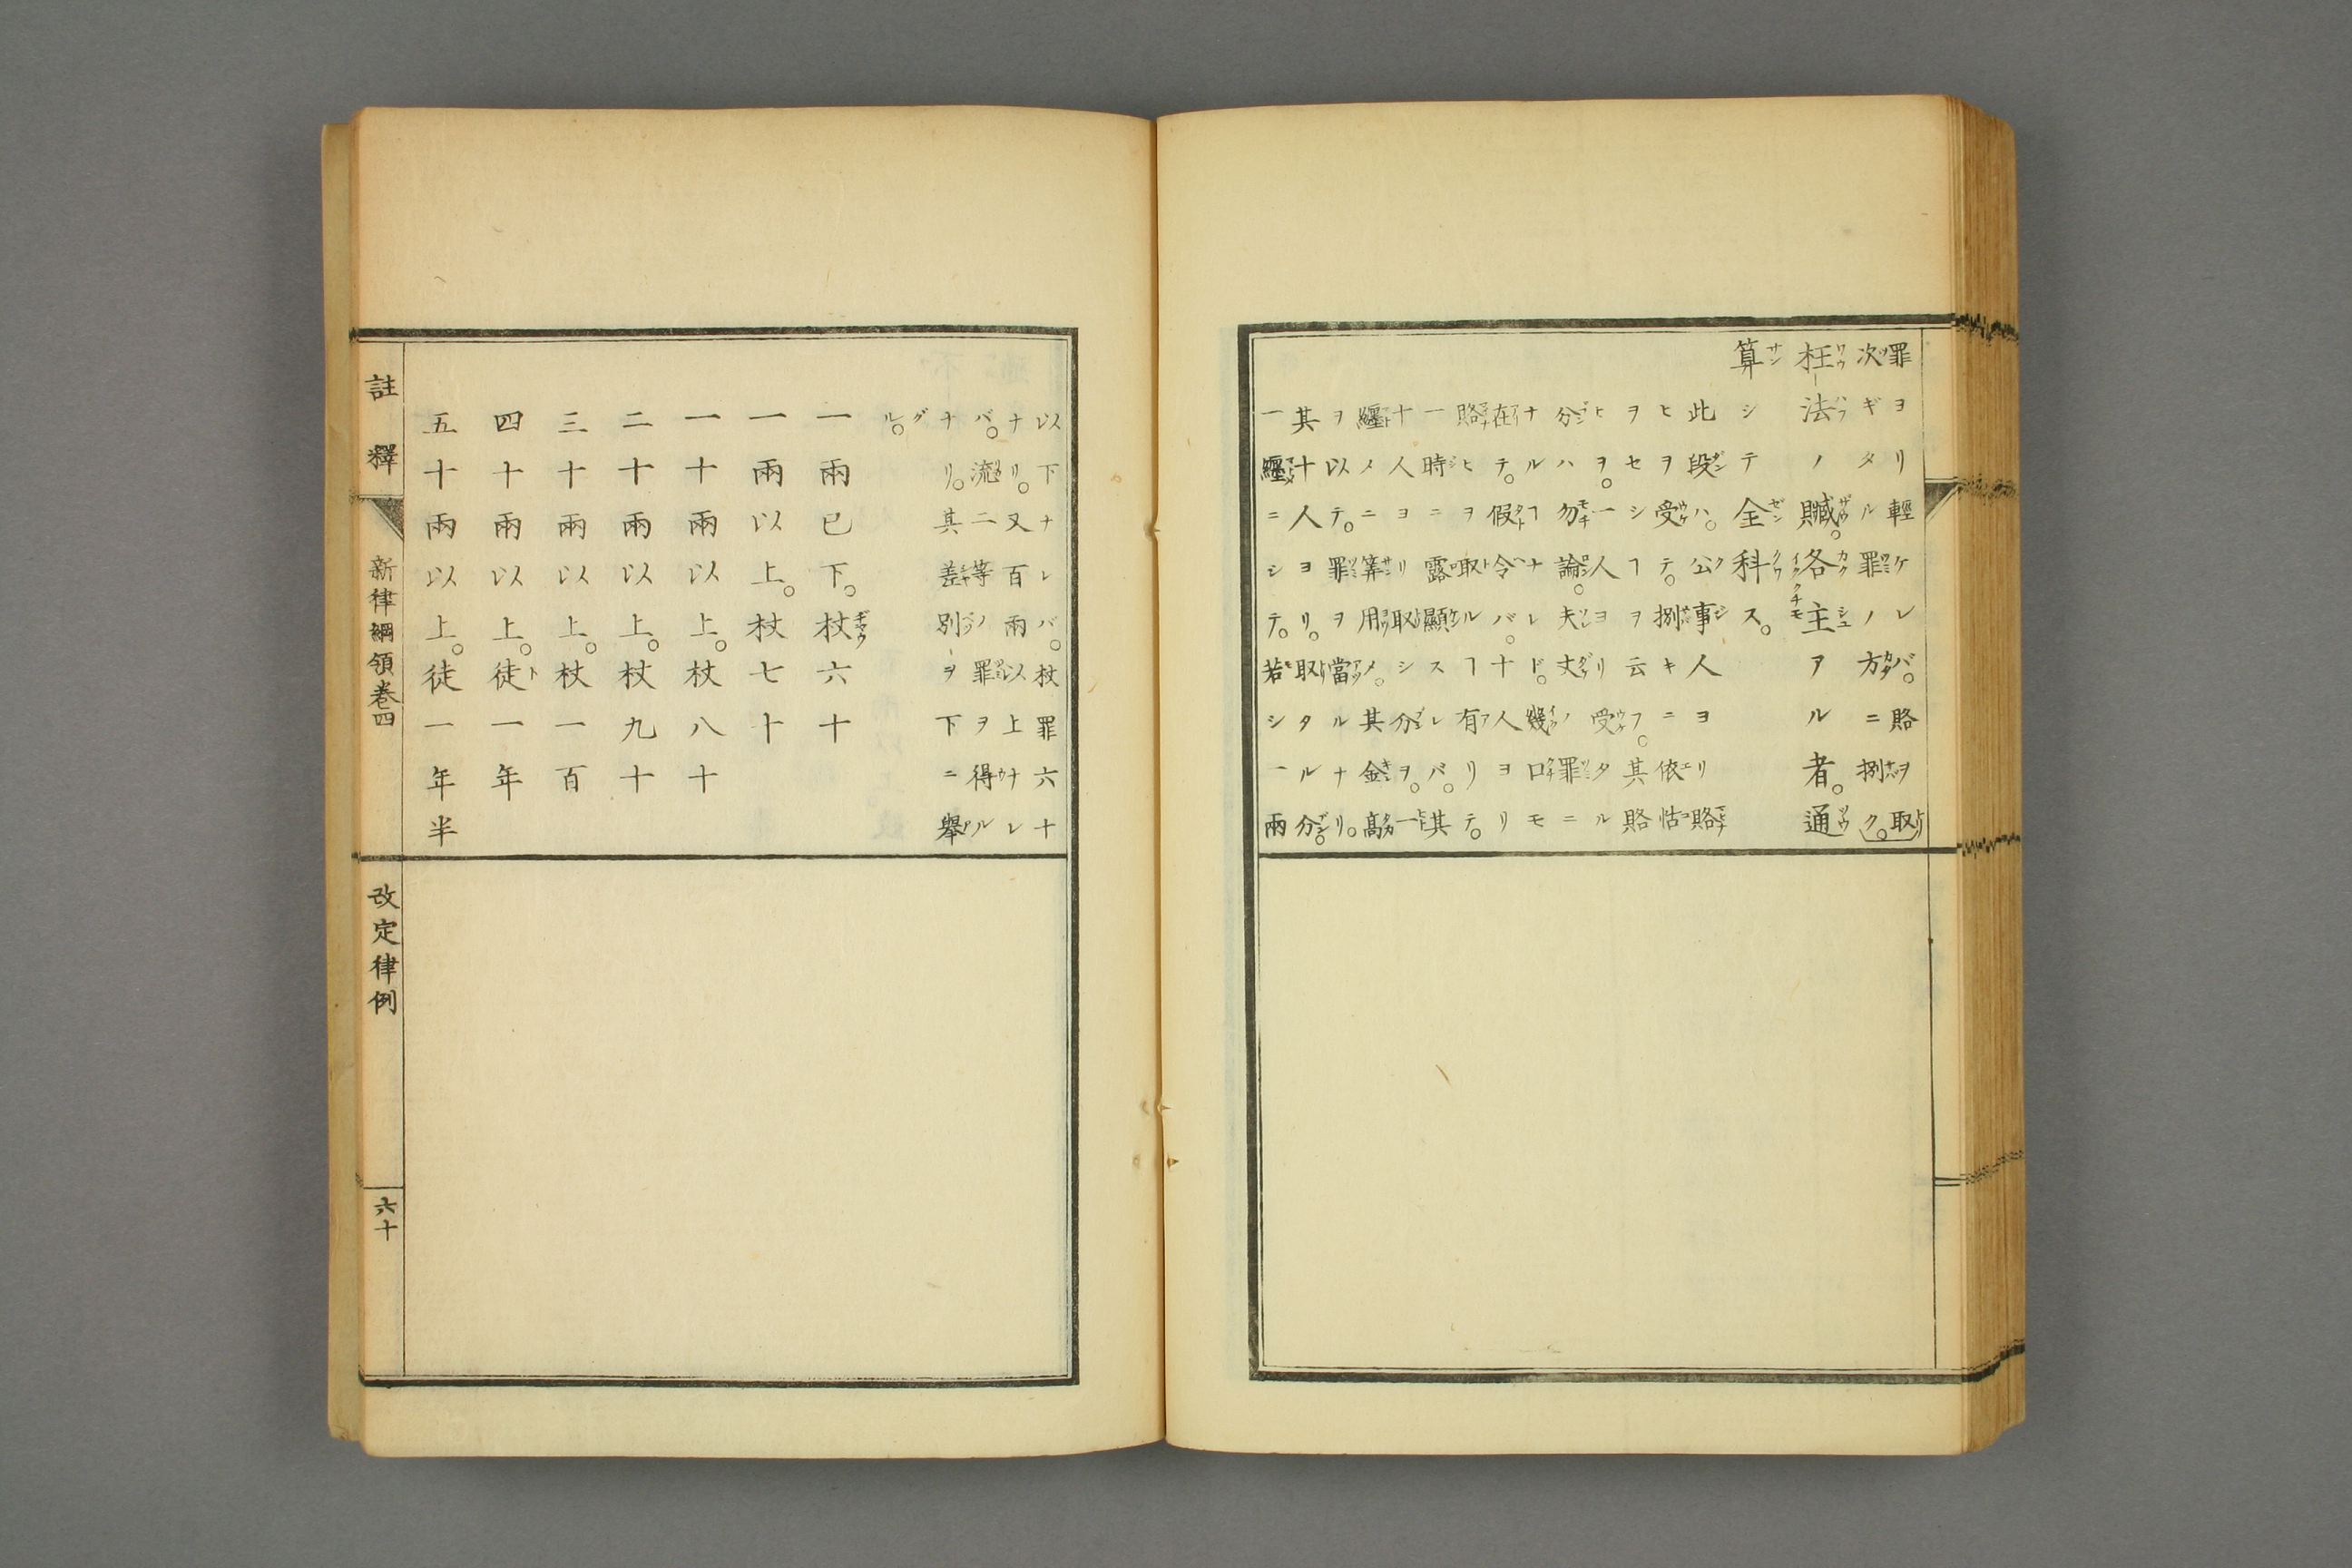 罪ヨリ輕ケレバ。賂ヲ取
次ギタル罪ノ方ニ捌ク。
枉法ノ贓。各主アル者。通
算シテ全科ス。
此段ハ。公事人ヨリ賂
ヒヲ受テ。捌キニ依怙
ヲセシヿヲ云フ。其賂
ヒヲ。一人ヨリ受タル
分ハ勿論。夫丈ノ罪ニ
ナルヿナレド。幾口モ
在テ。假令バ。十人ヨリ
賂ヒヲ取ルヿ有リテ。
一時ニ露顯スレバ。其
十人ヨリ取シ分ヲ。一
纏メニ算用メ。其金高
ヲ以テ。罪ヲ當ルナリ。
其十人ヨリ。取タル分。
一纏ニシテ。若シ一兩
以下ナレバ。杖罪六十
ナリ。又百兩以上ナレ
バ。流二等ノ罪ヲ得ル
ナリ。其差別ヲ下ニ舉
グル。
一兩已下。杖六十
一兩以上。杖七十
一十兩以上。杖八十
二十兩以上。杖九十
三十兩以上。杖一百
四十兩以上。徒一年
五十兩以上。徒一年半
註釋 新律綱領卷四 改定律例 六十